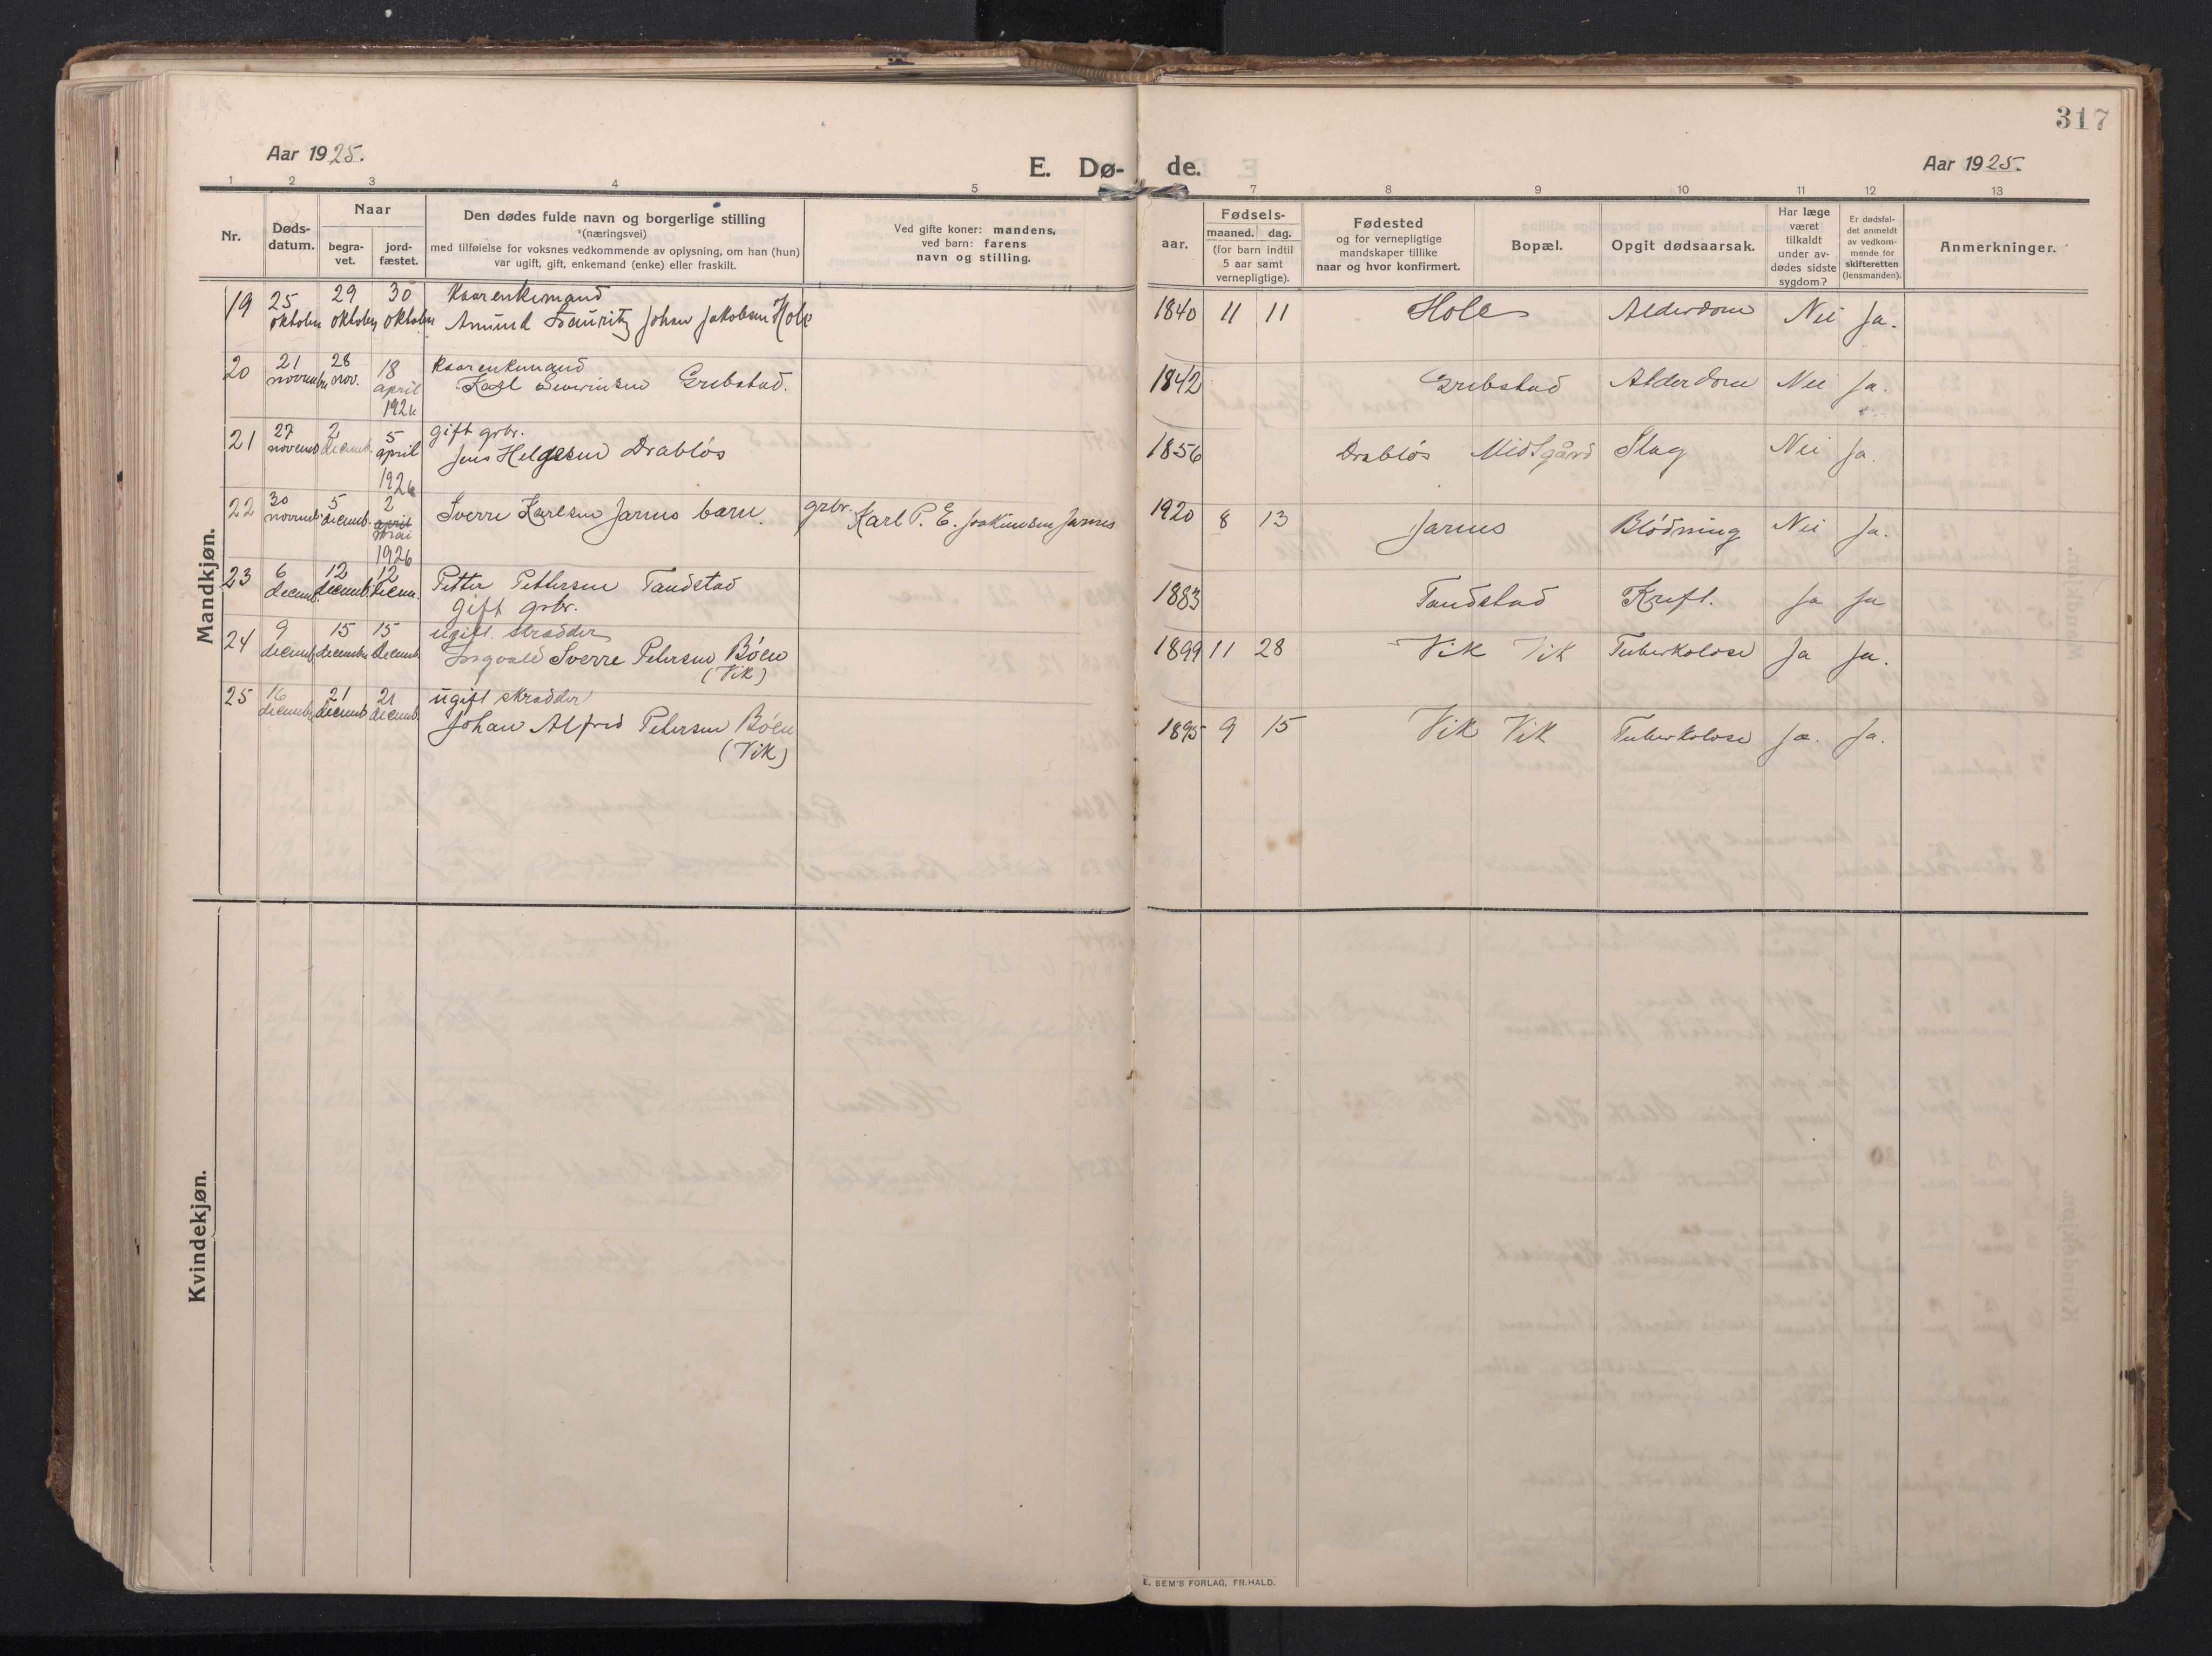 317
Aar 1925.
E. Dø- de.
Aar 1925.
1 2 3 4 5 7 8 9 10 11 12 13
Nr.
Døds-
datum.
Naar
begra-
vet.
jord-
fæstet.
Den dødes fulde navn og borgerlige stilling
(næringsvei)
med tilføielse for voksnes vedkommende av oplysning, om han (hun)
var ugift, gift, enkemand (enke) eller fraskilt.
Ved gifte koner: mandens,
ved barn: farens
navn og stilling.
aar.
Fødsels-
maaned. dag.
(for barn indtil
5 aar samt
vernepligtige).
Fødested
og for vernepligtige
mandskaper tillike
naar og hvor konfirmert.
Bopæl.
Opgit dødsaarsak.
Har læge
været
tilkaldt
under av-
dødes sidste
sygdom?
Er dødsfal-
det anmeldt
av vedkom-
mende for
skifteretten
(lensmanden).
Anmerkninger.
Mandkjøn.
19 25 29 30 Kaarenkemand
oktober oktober oktober Amund Lauritz Johan Jakobsen Hole 1840 11 11 Hole Alderdom Nei Ja.
20 21 28 18 Kaarenkemand
november nov. april Karl Severinsen Grebstad. 1842 Grebstad Alderdom Nei Ja.
1926
21 27 2 5 gift grbr.
novemb decemb. april Jens Helgesen Drabløs 1856 Drabløs Midtgård Slag Nei Ja.
1926
22 30 5 2 Sverre Karlsen Jarnes barn. grbr. Karl P. E. Joakimsen Jarnes 1920 8 13 Jarnes Blødning Nei Ja.
novemb. decemb. april
mai
1926
23 6 12 12 Petter Pettersen Tandstad 1883 Tandstad Kreft. Ja Ja
decemb. decemb. decem. gift grbr.
24 9 15 15 ugift. skrædder
decemb. december decemb. Ingvald Sverre Petersen Bøen 1899 11 28 Vik Vik Tuberkolose Ja Ja.
(Vik)
25 16 21 21 ugift skrædder
december decemb decemb. Johan Alfred Petersen Bøen 1895 9 15 Vik Vik Tuberkolose Ja. Ja.
(Vik)
Kvindekjøn.
E. SEM'S FORLAG, FR.HALD.